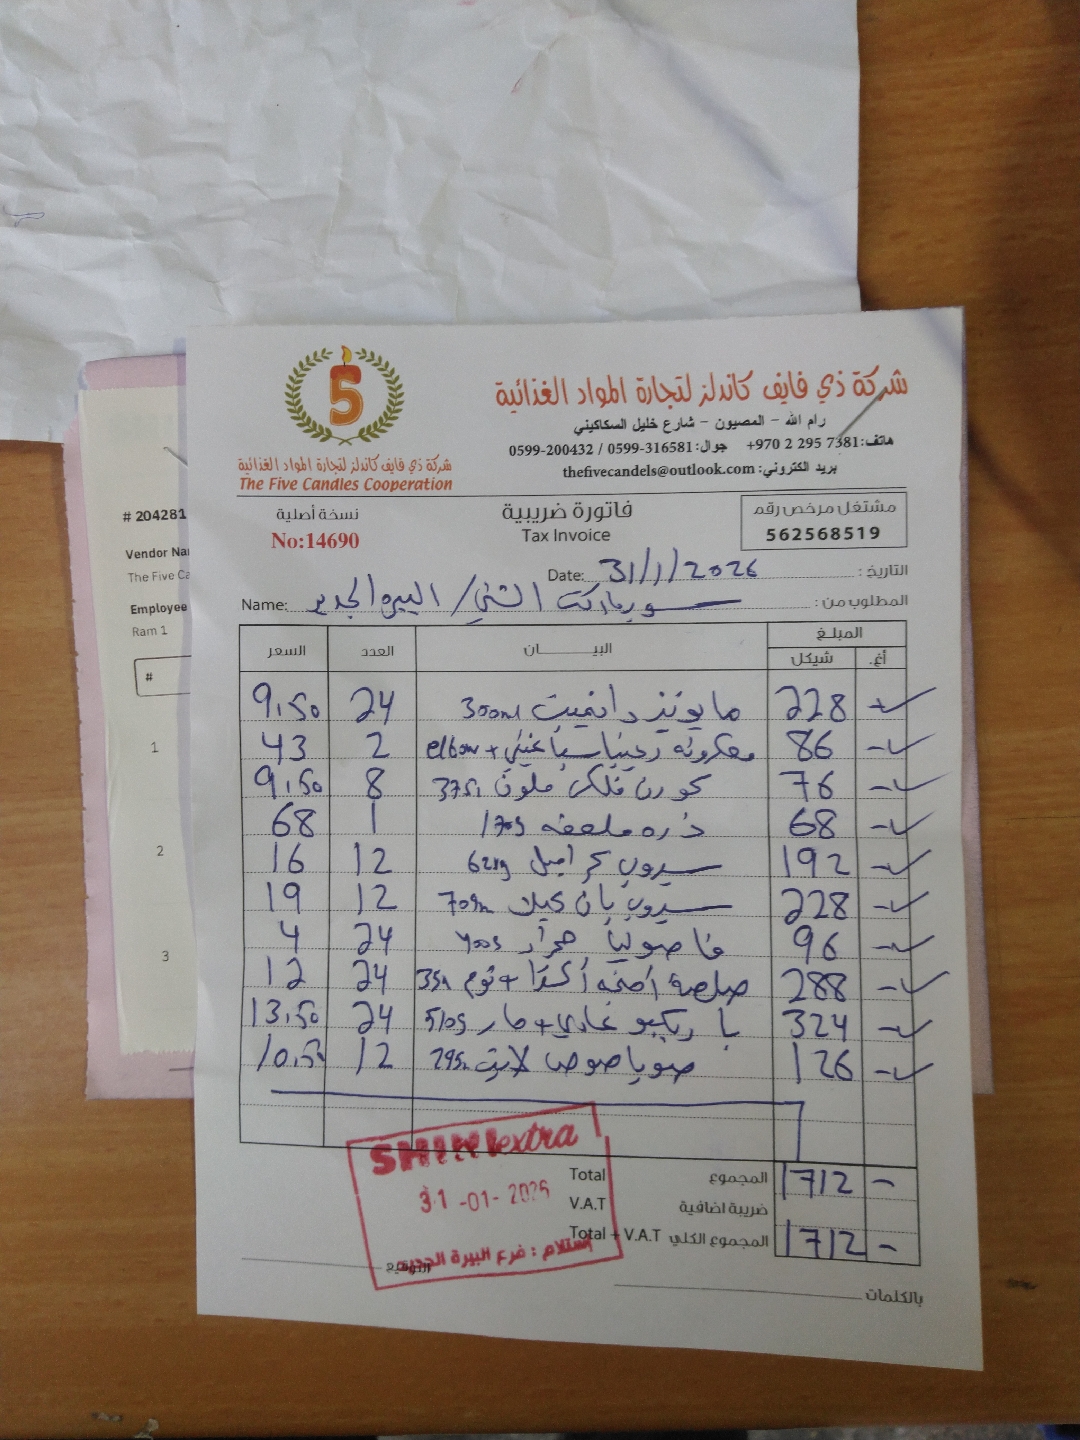 5
شركة ذي فايف كاندلز لتجارة المواد الغذائية
The Five Candles Cooperation
شركة ذي فايف كاندلز لتجارة المواد الغذائية
رام الله – المصيون – شارع خليل السكاكيني
هاتف: +970 2 295 7381 جوال: 0599-316581 / 0599-200432
بريد الكتروني: thefivecandels@outlook.com
نسخة أصلية
No:14690
فاتورة ضريبية
Tax Invoice
مشتغل مرخص رقم
562568519
التاريخ : Date: 31/1/2026
المطلوب من : سوبرماركت الشني / البيرة الجديد Name:
المبلغ
شيكل أغ. البيـــــان العدد السعر
228 - مايونيز دايميت 300ml 24 9.50
86 - معكرونه زجينيا سباغيتي + elbow 2 43
76 - كورن فلكس ملون 375g 8 9.50
68 - ذره ملعقه 170g 1 68
192 - سيروب كراميل 624g 12 16
228 - سيروب بان كيك 709m 12 19
96 - فاصوليا حمراء 400g 24 4
288 - صلصة + ثوم 24 12
324 - باربكيو عادي + حار 510g 24 13.50
126 - صويا صوص لايت 295m 12 10.50
المجموع Total 1712 -
ضريبة اضافية V.A.T
المجموع الكلي Total + V.A.T 1712 -
SHINI extra
31-01-2026
استلام : فرع البيرة الجديد
التوقيع
بالكلمات
# 204281
Vendor Na
The Five Ca
Employee
Ram 1
#
1
2
3